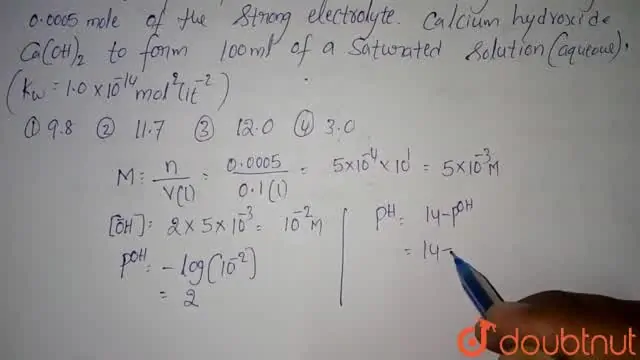 0.0005 mole of the Strong electrolyte. Calcium hydroxide
Ca(OH)2 to form 100ml of a Saturated Solution (aqueous).
(Kw = 1.0 × 10^-14 mol^2 lit^-2)
① 9.8 ② 11.7 ③ 12.0 ④ 3.0
M = n/V(l) = 0.0005/0.1(l) = 5×10^-4 × 10^1 = 5×10^-3 M
[OH]: 2 × 5 × 10^-3 = 10^-2 M
P^OH = -log(10^-2)
= 2
P^H = 14-P^OH
= 14-
doubtnut